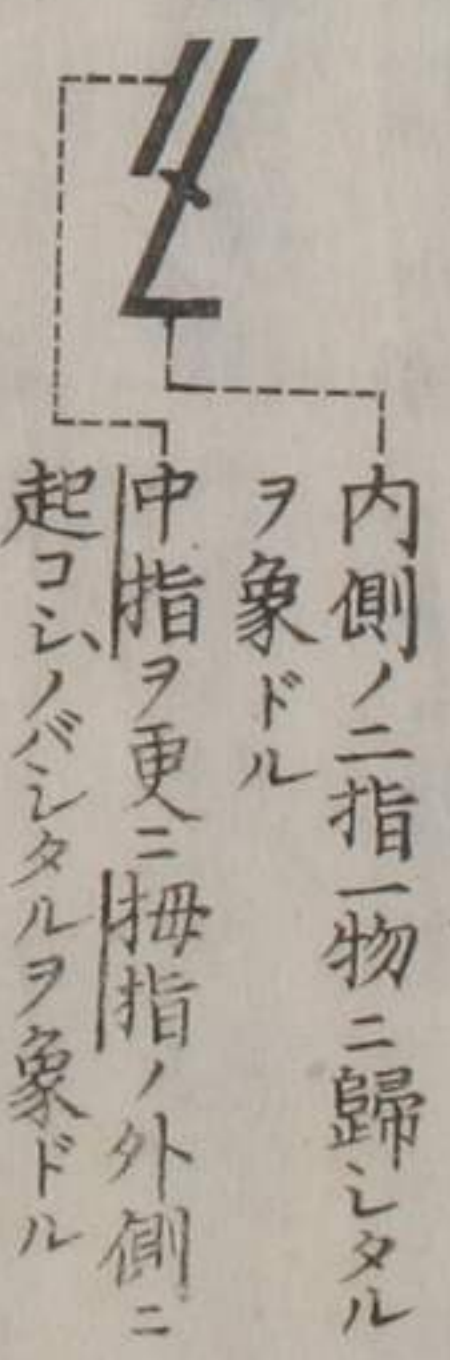 内側ノ二指一物ニ歸シタル
ヲ象ドル
中指ヲ更ニ拇指ノ外側ニ
起コシ、ノバシタルヲ象ドル